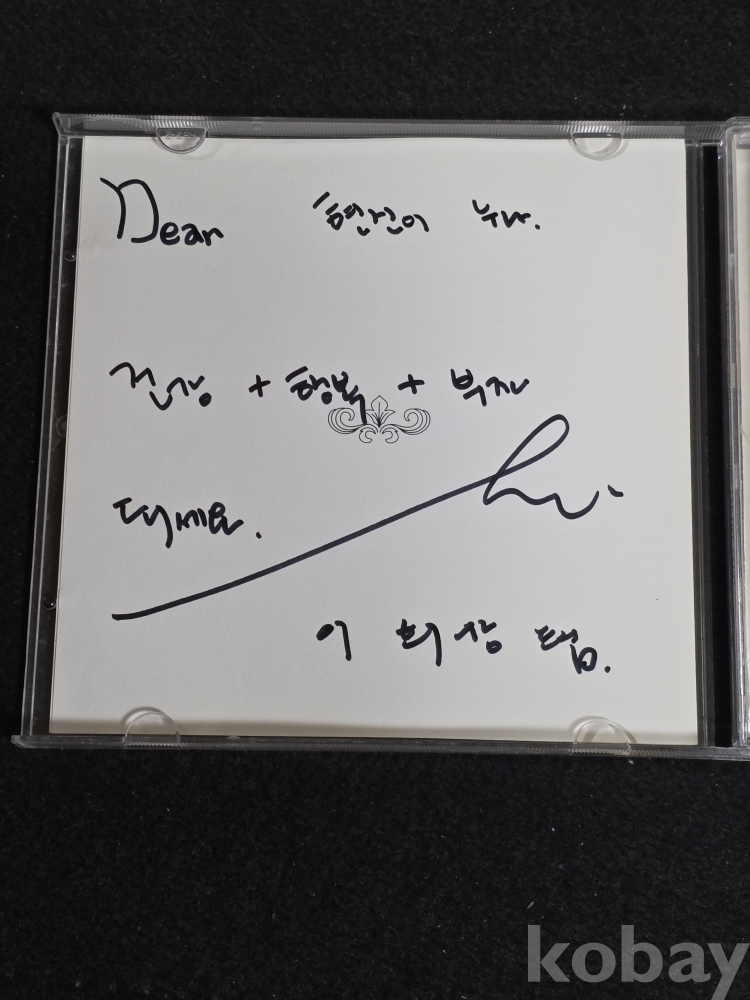 Dear 현진이 누나.
건강 + 행복 + 부자
되세요.
이 회장 드림.
kobay